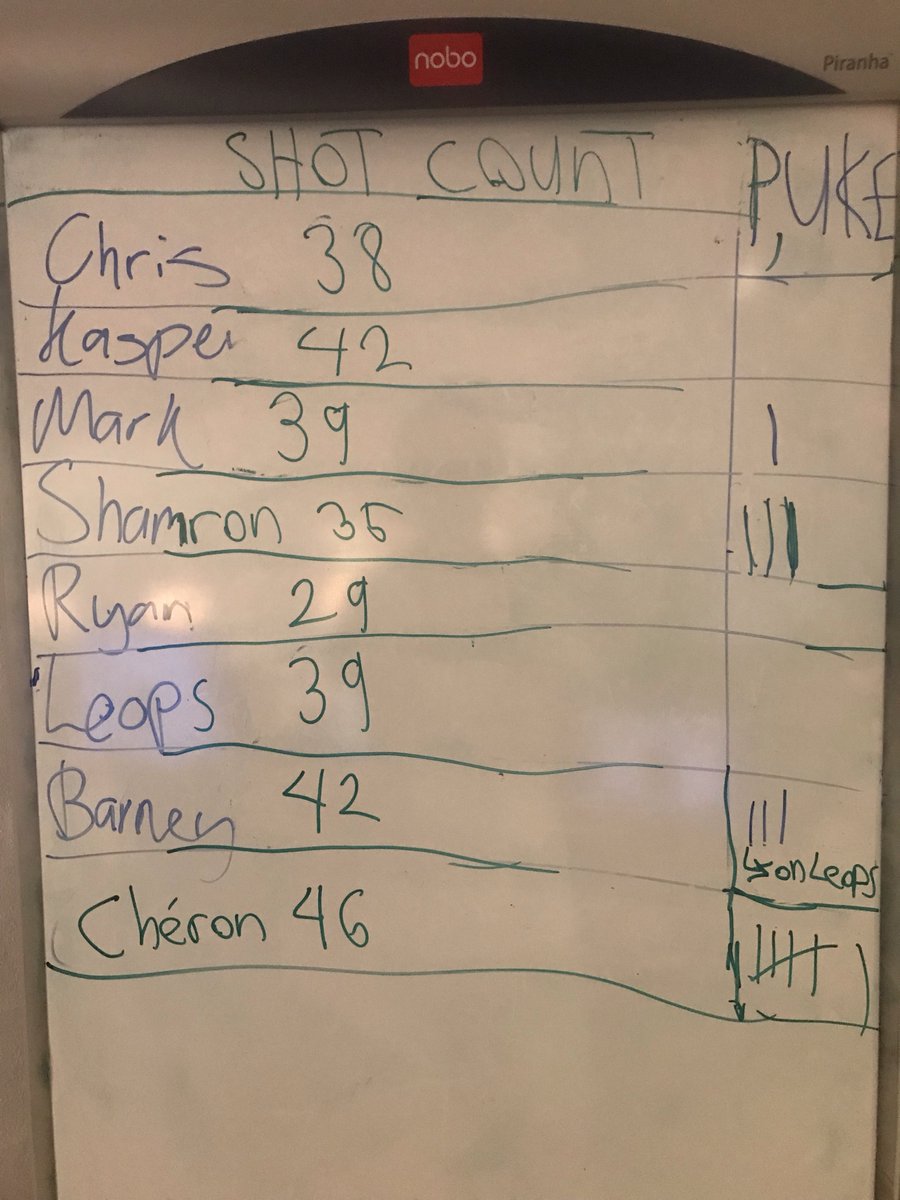 nobo
Piranha
SHOT COUNT P,UKE
Chris 38
Kasper 42
Mark 39 |
Shamron 35 |||
Ryan 29
Leops 39
Barney 42 |||
↳ on Leops
Chéron 46 |||| |